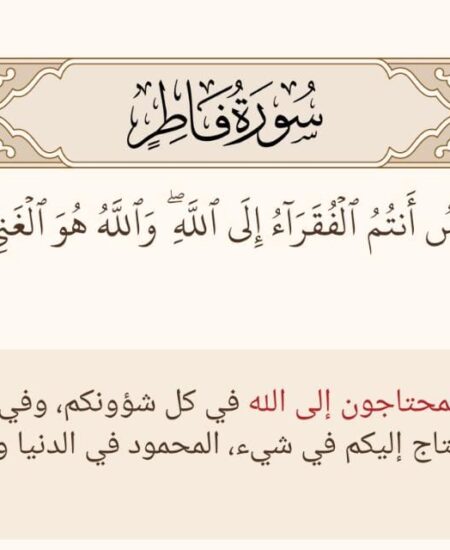 سُورَةُ فَاطِرٍ
أَنتُمُ ٱلۡفُقَرَآءُ إِلَى ٱللَّهِۖ وَٱللَّهُ هُوَ
إلى الله في كل شؤونكم، وفي
إليكم في شيء، المحمود في الدنيا